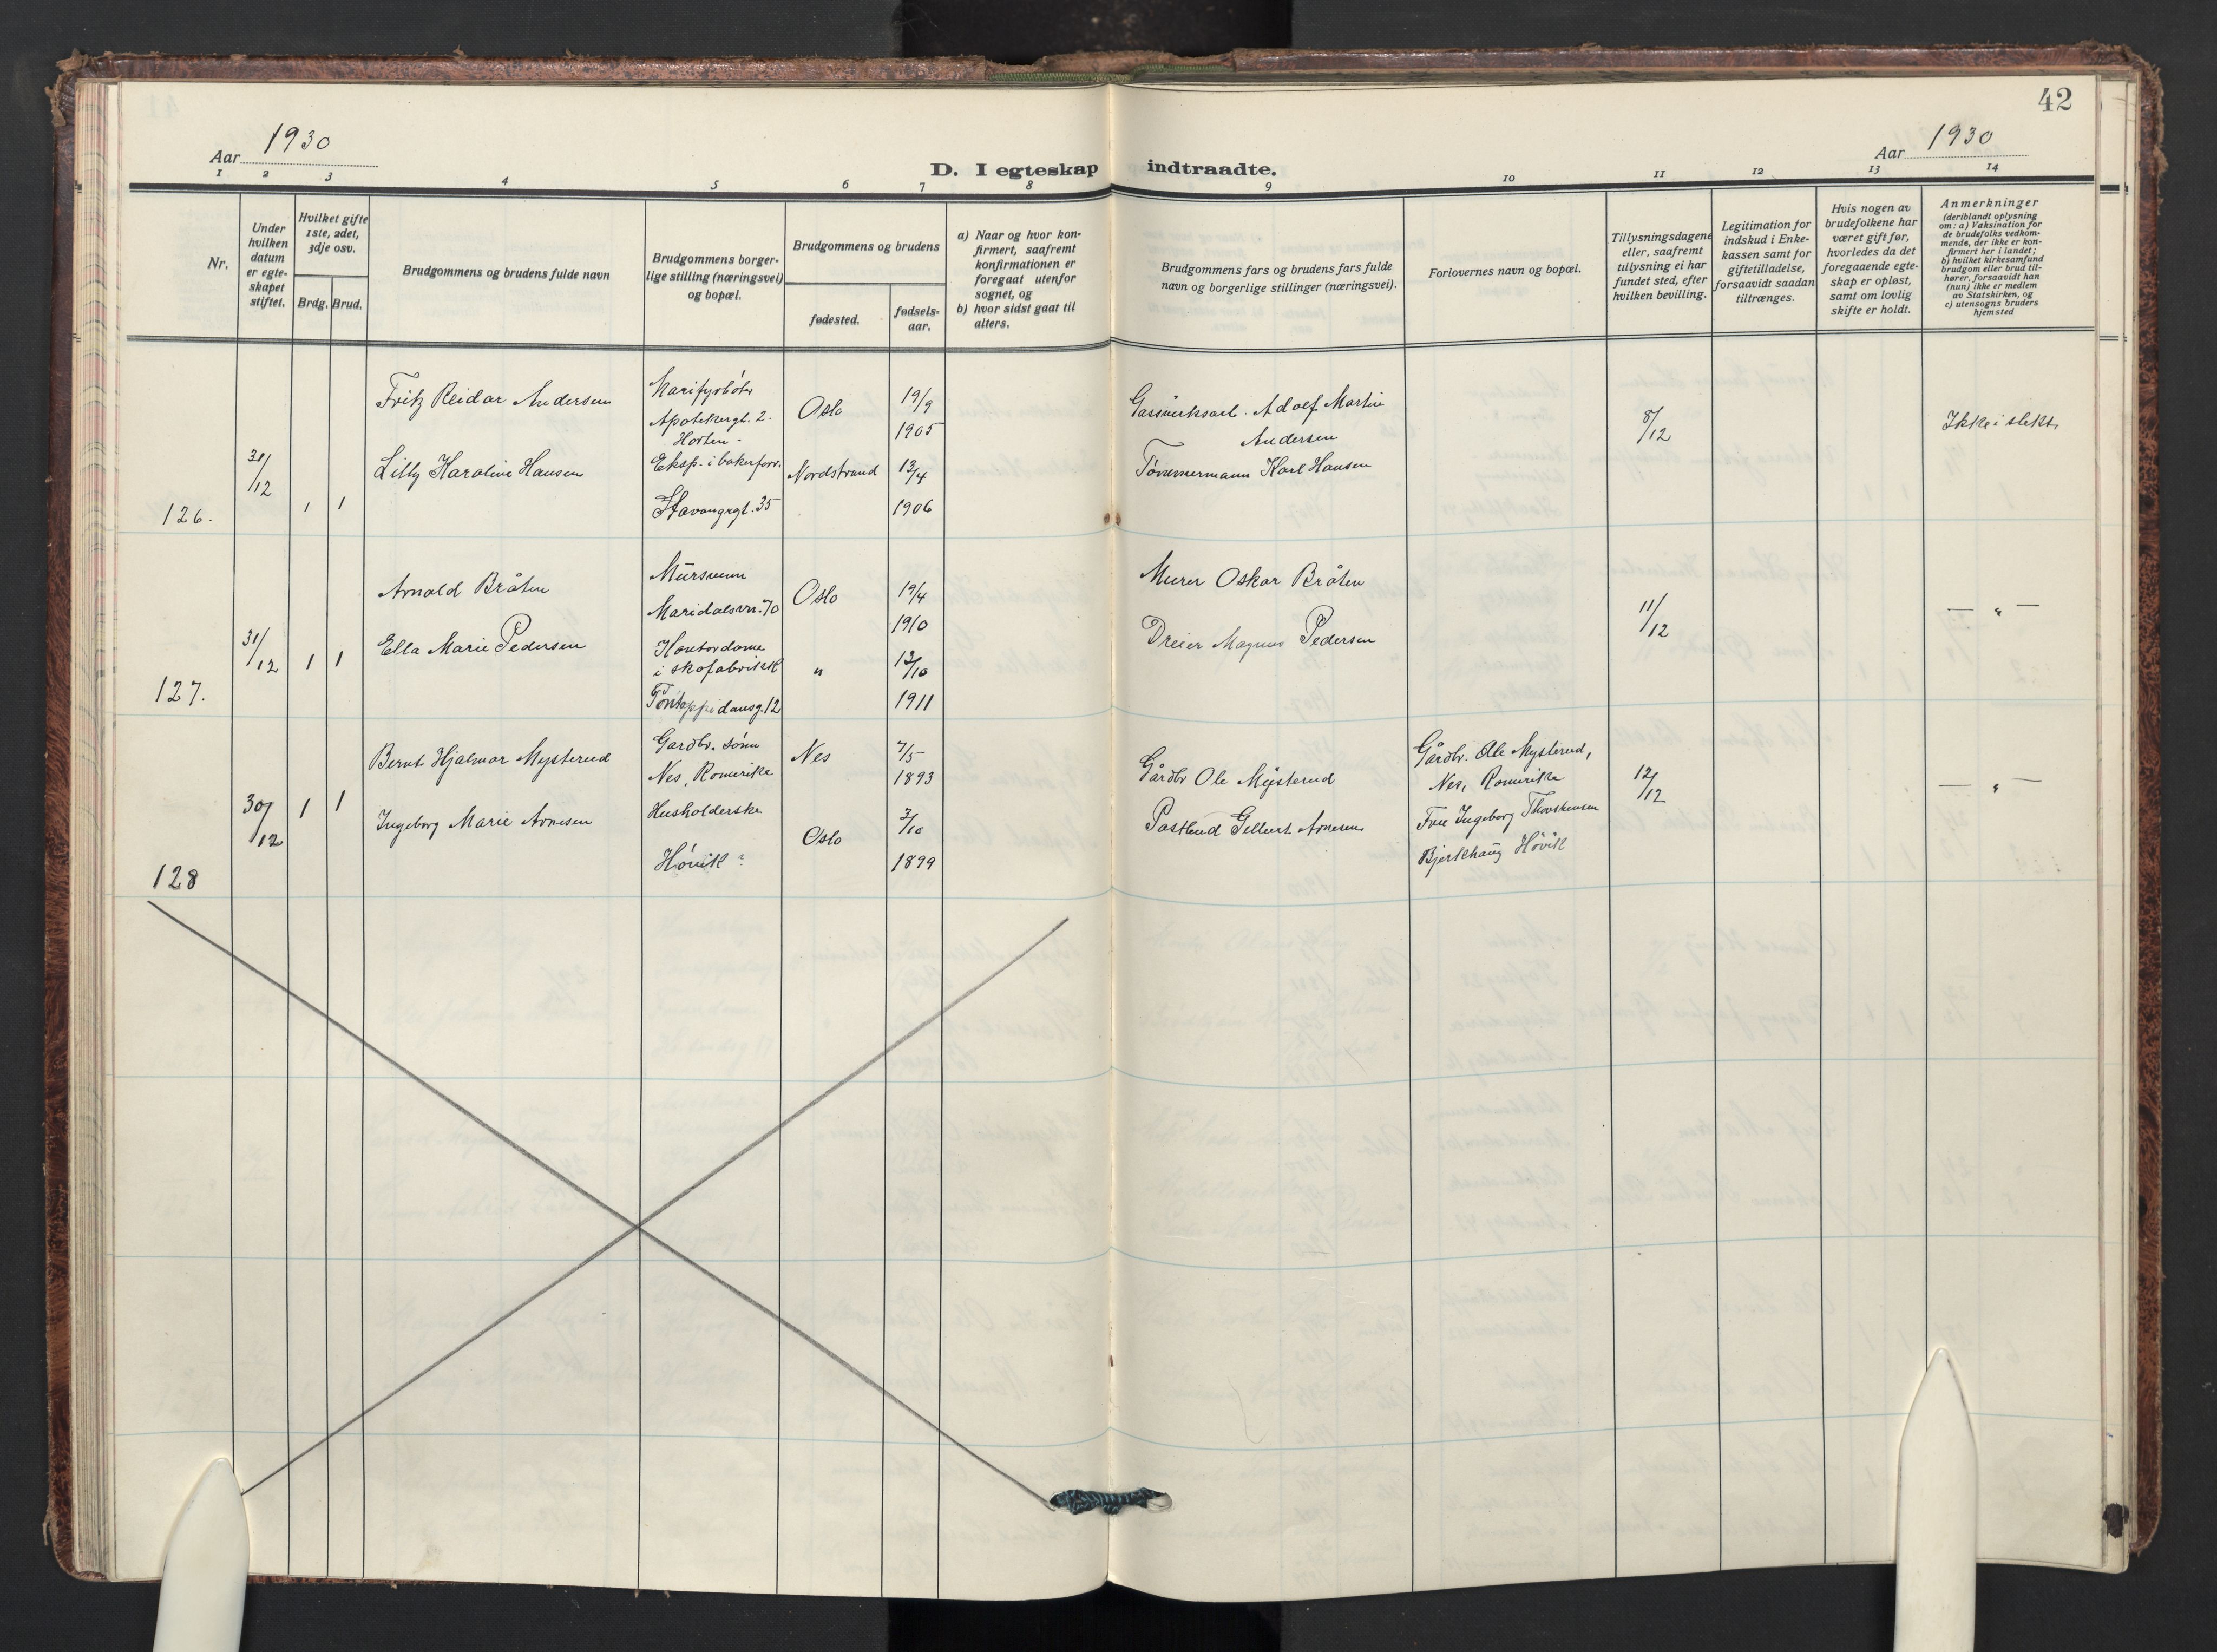 42
Aar 1930
Aar 1930
D. I egteskap indtraadte.
1 2 3 4 5 6 7 8 9 10 11 12 13 14
Nr.
Under
hvilken
datum
er egte-
skapet
stiftet.
Hvilket gifte
1ste, 2det,
3dje osv.
Brdg. Brud.
Brudgommens og brudens fulde navn
Brudgommens borger-
lige stilling (næringsvei)
og bopæl.
Brudgommens og brudens
fødested.
fødsels-
aar.
a) Naar og hvor kon-
firmert, saafremt
konfirmationen er
foregaat utenfor
sognet, og
b) hvor sidst gaat til
alters.
Brudgommens fars og brudens fars fulde
navn og borgerlige stillinger (næringsvei).
Forlovernes navn og bopæl.
Tillysningsdagene
eller, saafremt
tillysning ei har
fundet sted, efter
hvilken bevilling.
Legitimation for
indskud i Enke-
kassen samt for
giftetilladelse,
forsaavidt saadan
tiltrænges.
Hvis nogen av
brudefolkene har
været gift før,
hvorledes da det
foregaaende egte-
skap er opløst,
samt om lovlig
skifte er holdt.
Anmerkninger
(deriblandt oplysning
om: a) Vaksination for
de brudefolks vedkom-
mende, der ikke er kon-
firmert her i landet;
b) hvilket kirkesamfund
brudgom eller brud til-
hører, forsaavidt han
(hun) ikke er medlem
av Statskirken, og
c) utensogns bruders
hjemsted
126.
31/12
1 1
Fritz Reidar Andersen
Marifyrbøter
Apotekergt. 2.
Horten -
Oslo
19/9
1905
Gassverksarb. Adolf Martin
Andersen
8/12
Ikke i slekt.
Lilly Karoline Hansen
Eksp. i bakerforr.
Stavangrgt. 35
Nordstrand
13/4
1906
Tømmermann Karl Hansen
127.
31/12
1 1
Arnold Bråten
Mursvenn
Maridalsvn. 70
Oslo
19/4
1910
Murer Oskar Bråten
11/12
— " —
Ella Marie Pedersen
Kontordame
i skofabrikk
Pontoppidansg. 12
"
13/10
1911
Dreier Magnus Pedersen
128
30/12
1 1
Bernt Hjalmar Mysterud
Gardbr. sønn
Nes, Romerike
Nes
7/5
1893
Gårdbr Ole Mysterud
Gårdbr. Ole Mysterud,
Nes, Romerike
12/12
— " —
Ingeborg Marie Arnesen
Husholderske
Høvik
Oslo
3/10
1899
Postbud Gilbert Arnesen
Frue Ingeborg
Bjerkhaug Høvik